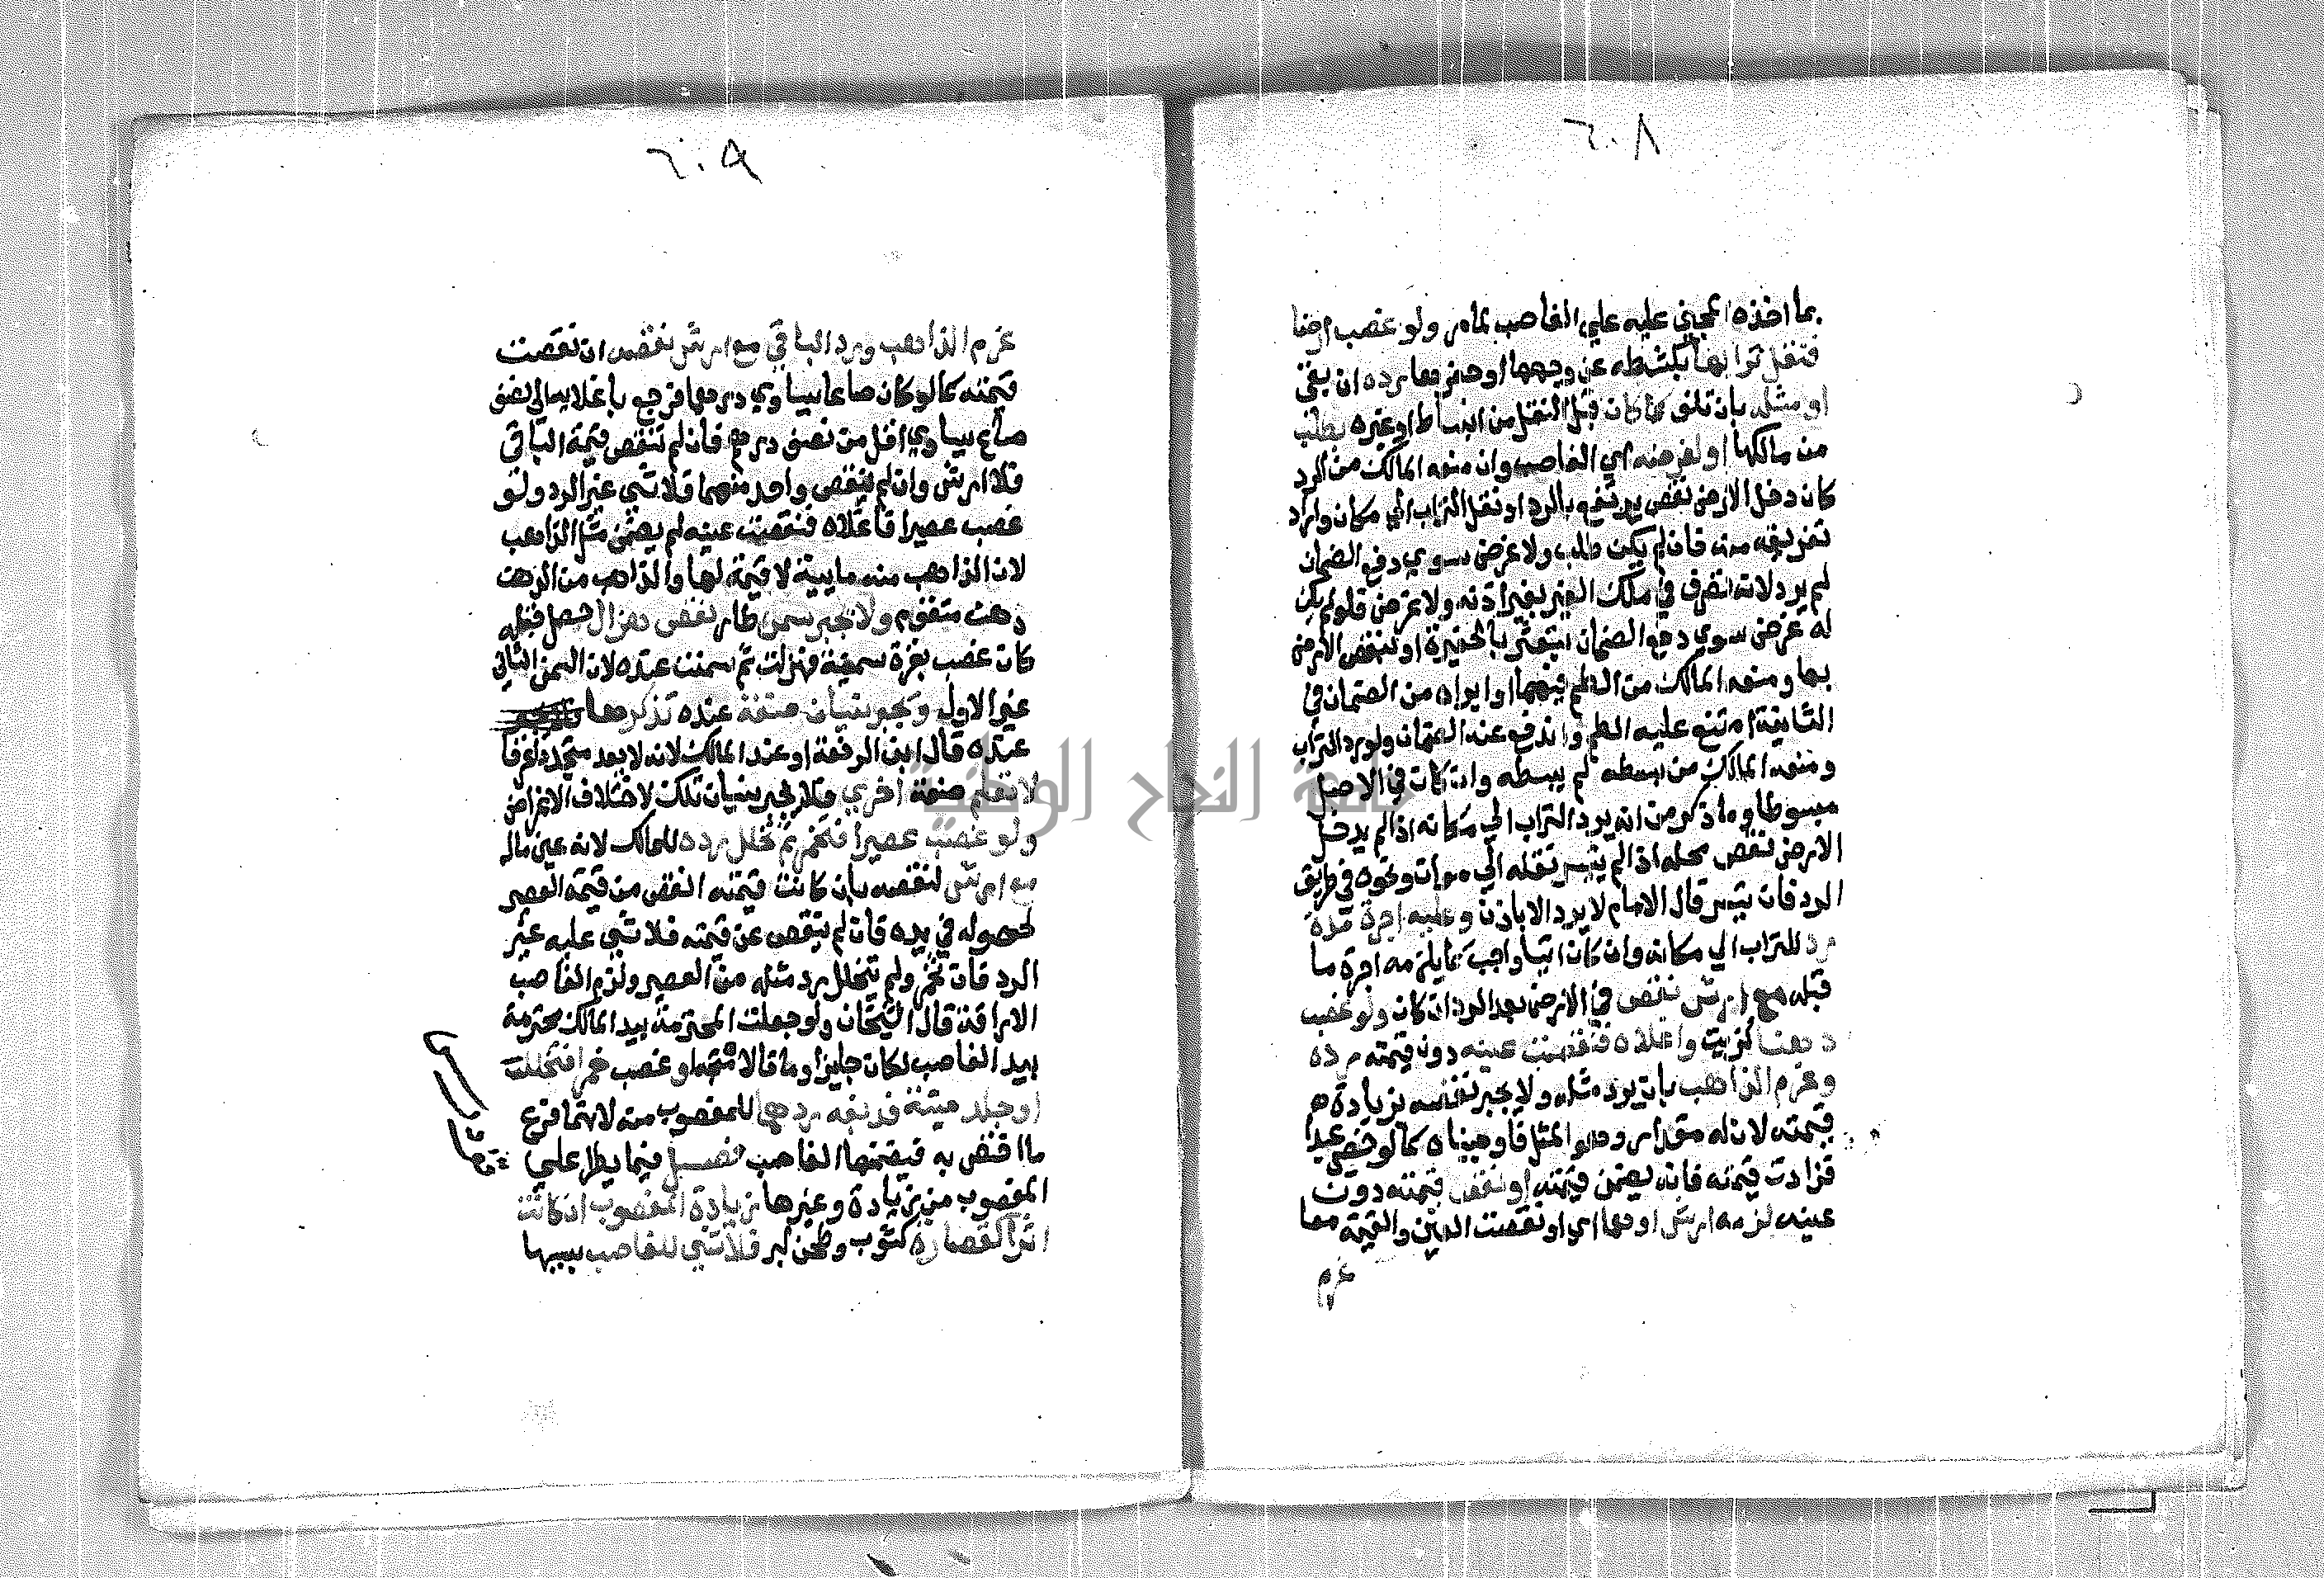 ٦٠٨
بما اخذه المجني عليه علي الغاصب لمامر ولو غصب ارضا
فنقل ترابها بكشطه عن وجهها او حفرها رده ان بقي
او مثله ان تلف كما كان قبل النقل من انبساط او غيره بطلب
من مالكها او لغرضه اي الغاصب وان منعه المالك من الرد
كان دخل الارض نقص يرتفع بالرد او نقل التراب الي مكان واراد
تفريغه منه فان لم يكن طلب ولا غرض سوي دفع الضمان
لم يرد لانه تصرف في ملك الغير بغير اذنه ولا غرض فلو لم يكن
له غرض سوي دفع الضمان بتعثر بالحفيرة او لنقص الارض
بها ومنعه المالك من الطم فيهما او ابراه من الضمان في
الثانية امتنع عليه الطم واندفع عنه الضمان ولو رد التراب
ومنعه المالك من بسطه لم يبسطه وان كان في الاصل
مبسوطا وما ذكر من انه يرد التراب الي مكانه اذا لم يدخل
الارض نقص محله اذا لم يتيسر نقله الي موات ونحوه في طريق
الرد فان تيسر قال الامام لا يرد الا باذن وعليه اجرة مدة
رد للتراب الي مكانه وان كان اتيا واجب كما يلزمه اجرة ما
قبله مع ارش نقص في الارض بعد الرد ان كان ولو غصب
دهنا كزيت واغلاه فنقصت عينه دون قيمته رده
وغرم الذاهب بان يرد مثله ولا يجبر نقصه بزيادة
قيمته لان له مقدار وهو المثل فاوجبناه كما لو خصي عبدا
فزادت قيمته فانه يضمن قيمته او نقص قيمته دون
عينه لزمه ارش او هما اي او نقصت العين والقيمة معا
غرم
٦٠٩
غرم الذاهب ورد الباقي مع ارش نقصه ان نقصت
قيمته كما لو كان صاعا يساوي درهما فرجع باغلايه الي نصف
صاع يساوي اقل من نصف درهم فان لم تنقص قيمة الباقي
فلا ارش وان لم ينقص واحد منهما فلا شي غير الرد ولو
غصب عصيرا فاغلاه فنقصت عينه لم يضمن مثل الذاهب
لان الذاهب منه مايية لا قيمة لها والذاهب من الدهن
دهن متقوم ولا يجبر سمن طار نقص هزال حصل قبله
كان غصب بقرة سمينة فهزلت ثم سمنت عنده لان السمن الثاني
غير الاول ويجبر نسيان صنعة عنده تذكرها
عنده قال ابن الرفعة او عند المالك لانه لا يعد متجددا عرفا
لا تعلم صنعة اخري فلا يجبر نسيان تلك لاختلاف الاغراض
ولو غصب عصيرا فتخمر ثم تخلل رده للمالك لانه عين ماله
مع ارش لنقصه بان كانت قيمته انقص من قيمة العصير
لحصوله في يده فان لم ينقص عن قيمته فلا شي عليه غير
الرد فان تخمر ولم تتخلل رد مثله من العصير ولزم الغاصب
الاراقة قال الشيخان ولو جعلت المحترمة بيد المالك محترمة
بيد الغاصب لكان جايزا وما قالاه متجه او غصب خمرا فتخللت
او جلد ميتة فدبغه ردهما للمغصوب منه لانهما فرع
ما اختص به فيضمنهما الغاصب فصل فيما يطرا علي
المغصوب من زيادة وغيرها زيادة المغصوب ان كانت
اثرا كقصارة كثوب وطحن لبر فلا شي للغاصب بسببها